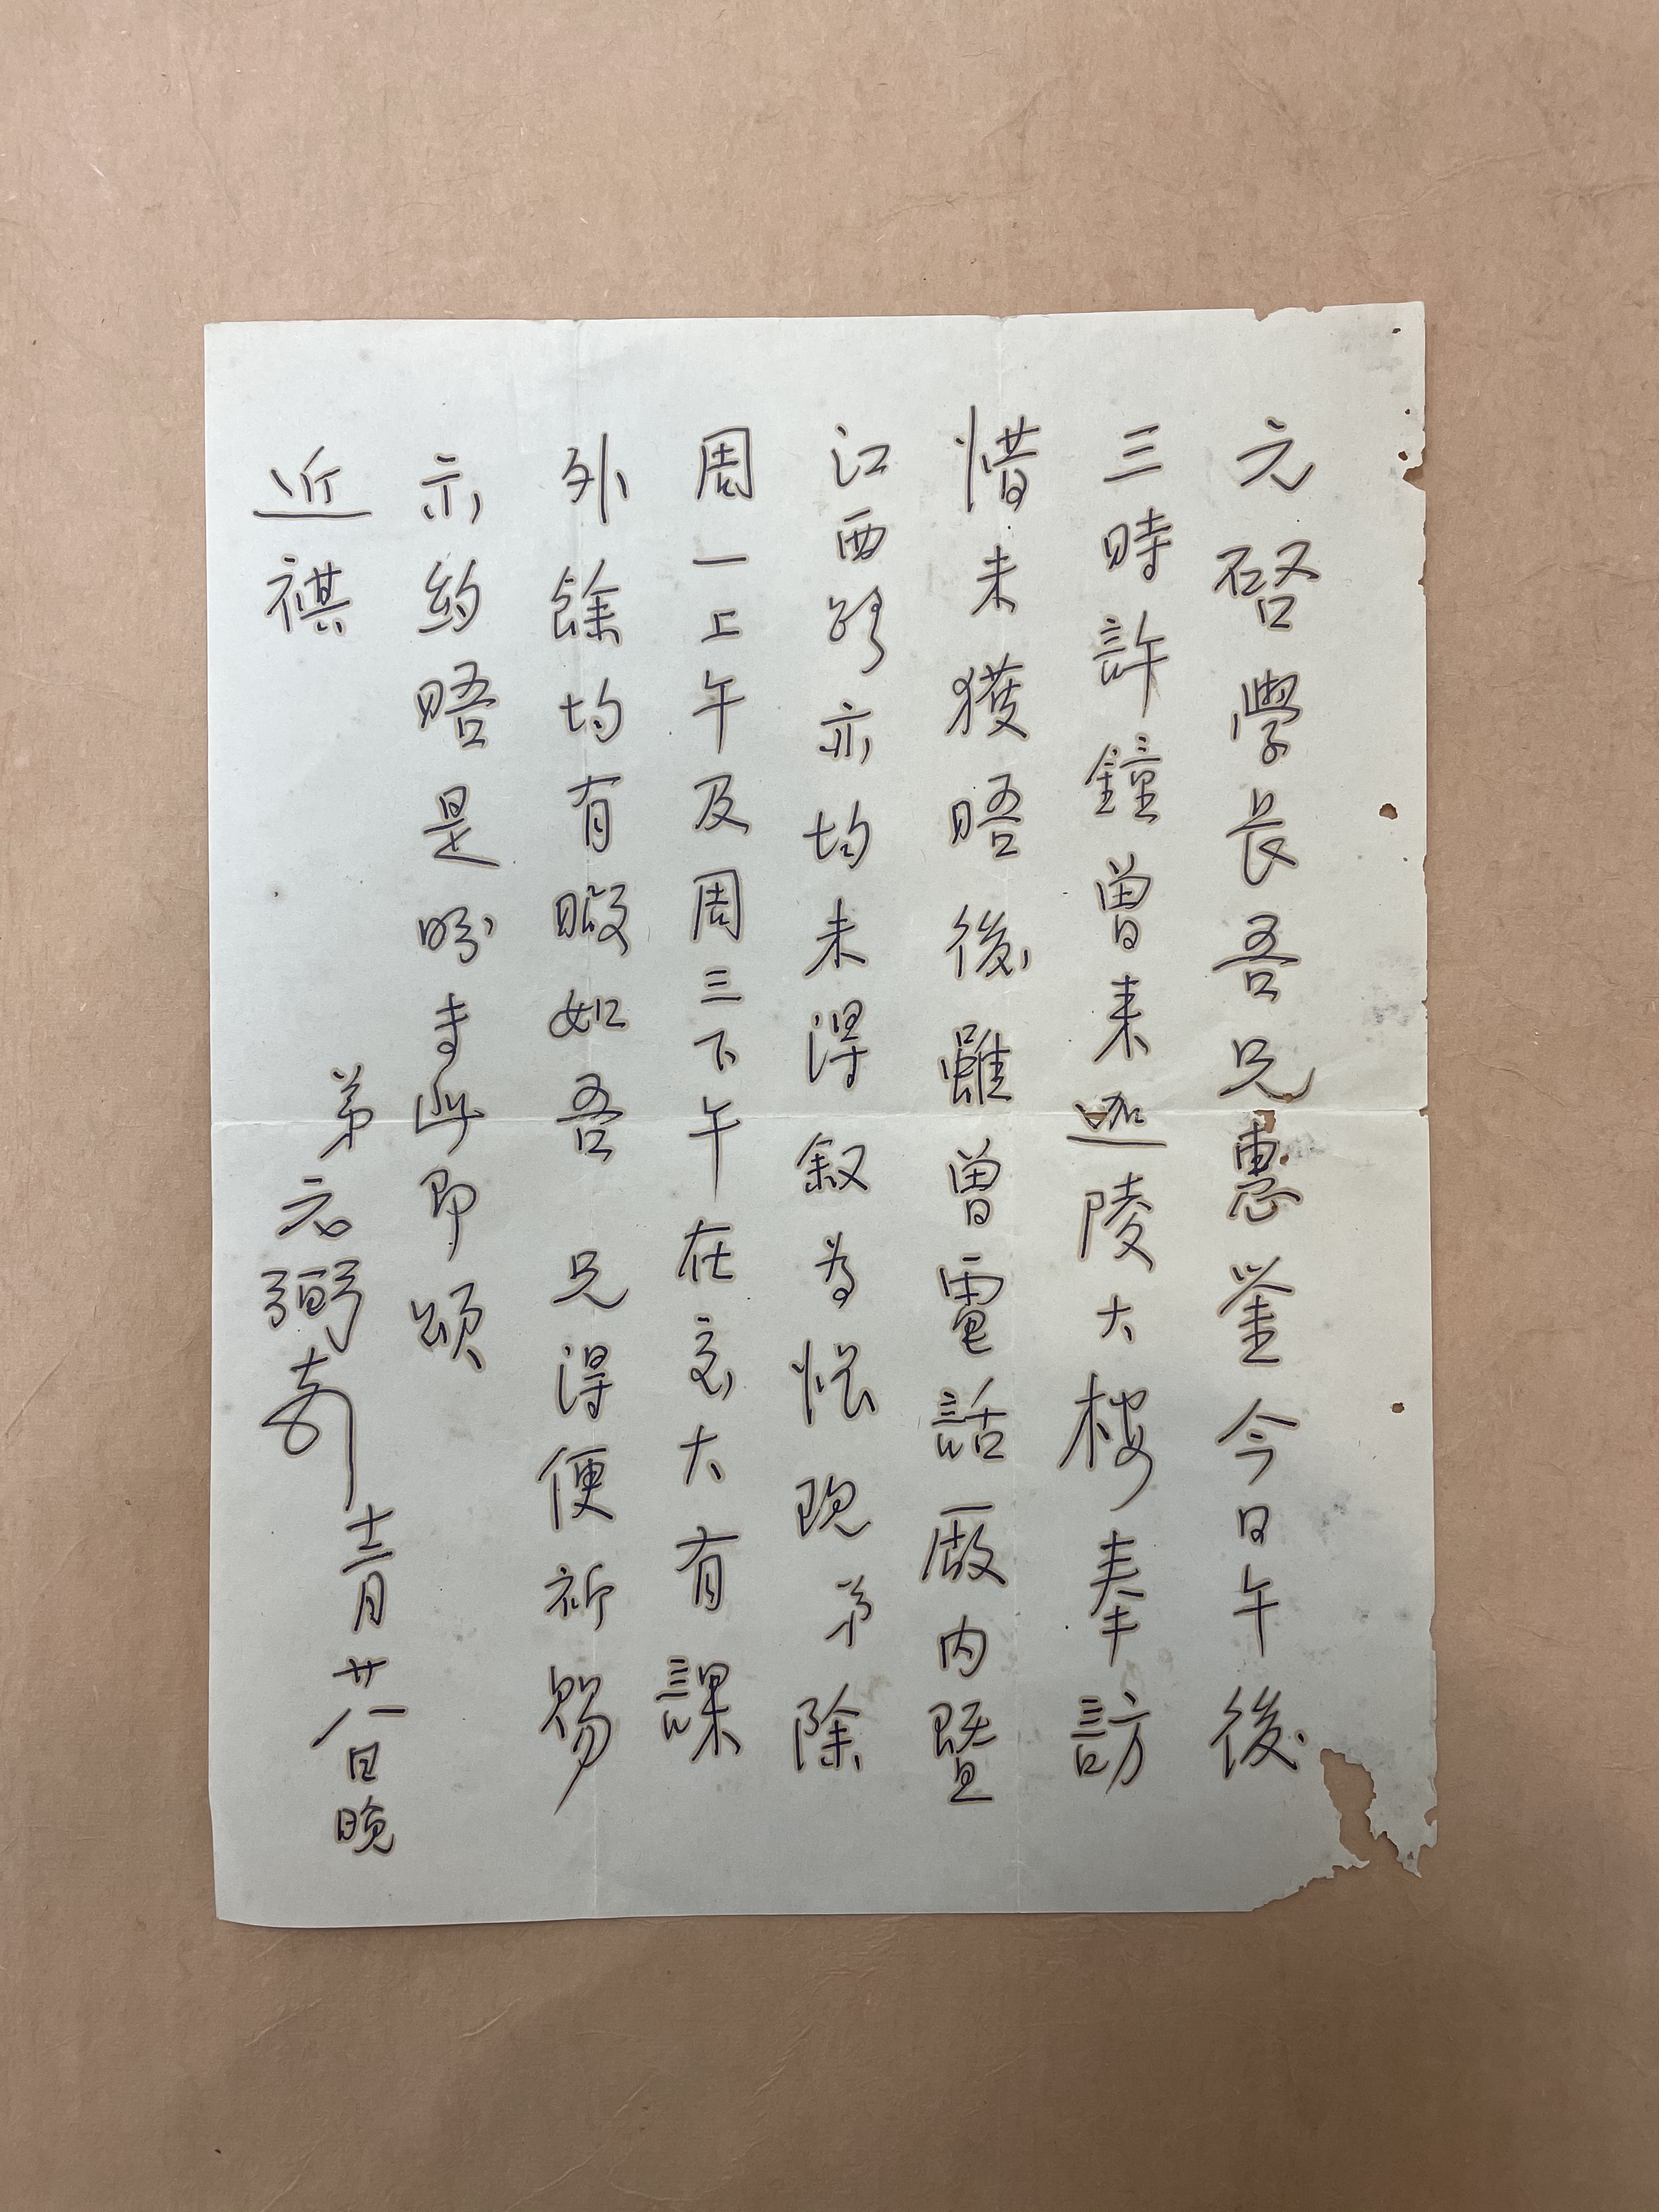 元啓學長吾兄惠鉴今日午後
三時許鐘曾来迦陵大樓奉訪
惜未獲晤後雖曾電話廠内暨
江西路亦均未得叙為悵現弟除
周一上午及周三下午在交大有課
外餘均有暇如吾 兄得便祈賜
示約晤是盼専此即頌
近祺
弟 弼
十二月廿八日晚